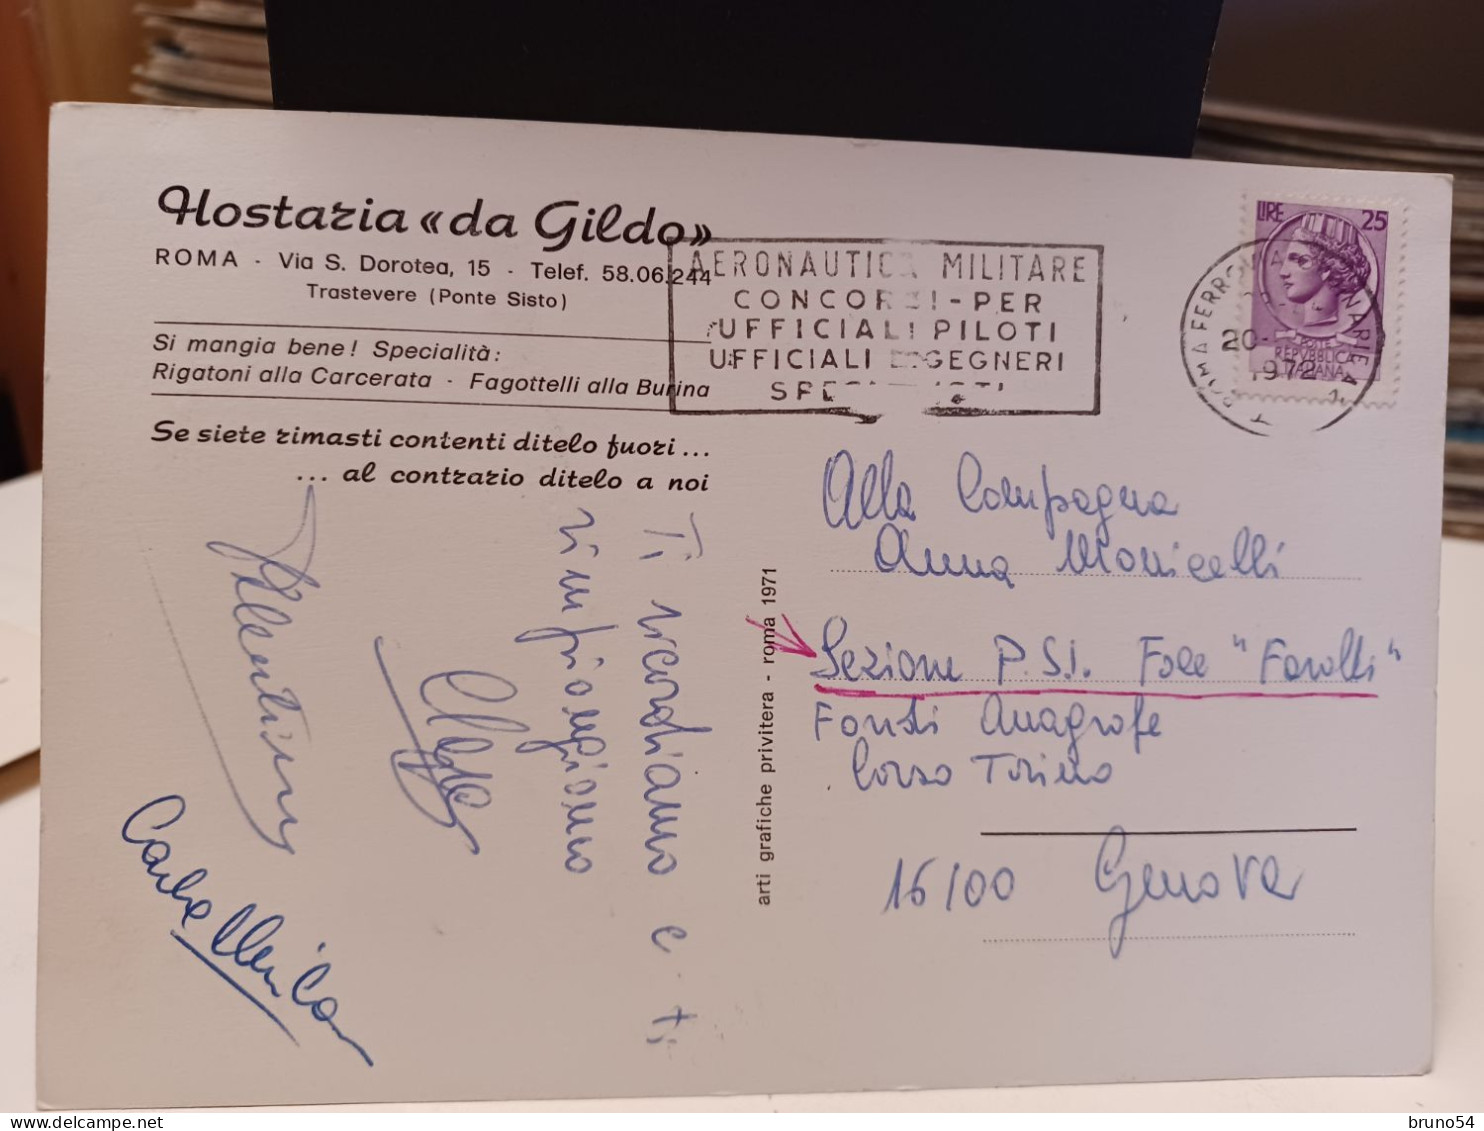 Hostaria «da Gildo»
ROMA - Via S. Dorotea, 15 - Telef. 58.06.244
Trastevere (Ponte Sisto)
Si mangia bene! Specialità:
Rigatoni alla Carcerata - Fagottelli alla Burina
Se siete rimasti contenti ditelo fuori...
... al contrario ditelo a noi
AERONAUTICA MILITARE
CONCORSI - PER
UFFICIALI PILOTI
UFFICIALI INGEGNERI
LIRE 25
POSTE
REPVBBLICA
ITALIANA
ROMA FERROVIA
20-
1972
Alla Compagna
Anna Monicelli
Sezione P.S.I.
Fondi Anagrafe
Corso Torino
16100 Genova
arti grafiche privitera - roma 1971
Ti ricordiamo e ti
rimpiangiamo
bruno54